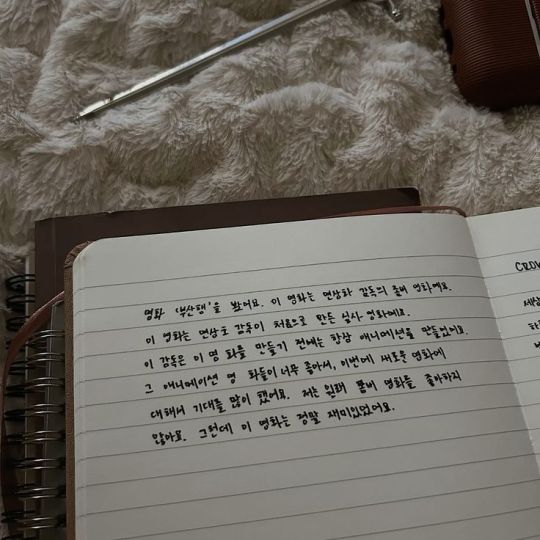 영화 '부산행'을 봤어요. 이 영화는 연상화 감독의 좀비 영화예요.
이 영화는 연상호 감독이 처음으로 만든 실사 영화예요.
이 감독은 이 영화를 만들기 전에는 항상 애니메이션을 만들었어요.
그 애니메이션 영화들이 너무 좋아서, 이번에 새로운 영화에
대해서 기대를 많이 했어요. 저는 원래 좀비 영화를 좋아하지
않아요. 그런데 이 영화는 정말 재미있었어요.
CROW
세상